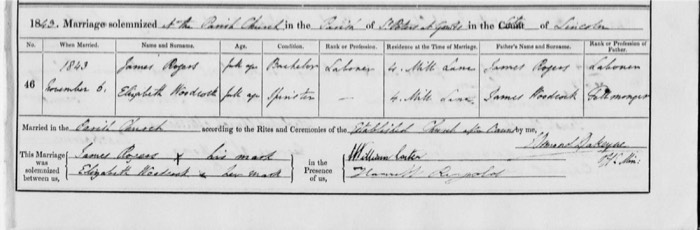 1843. Marriage solemnized at the Parish Church in the Parish of St Peter at Gowts in the County of Lincoln
No. When Married. Name and Surname. Age. Condition. Rank or Profession. Residence at the Time of Marriage. Father's Name and Surname. Rank or Profession of Father.
46 1843 November 6. James Rogers full age Bachelor Labourer 4. Mill Lane James Rogers Labourer
Elizabeth Woodcock full age Spinster — 4. Mill Lane James Woodcock Fellmonger
Married in the Parish Church according to the Rites and Ceremonies of the Established Church after Banns by me,
This Marriage was solemnized between us, James Rogers x his mark
Elizabeth Woodcock x her mark
in the Presence of us, William
Harriett
Off. Min: